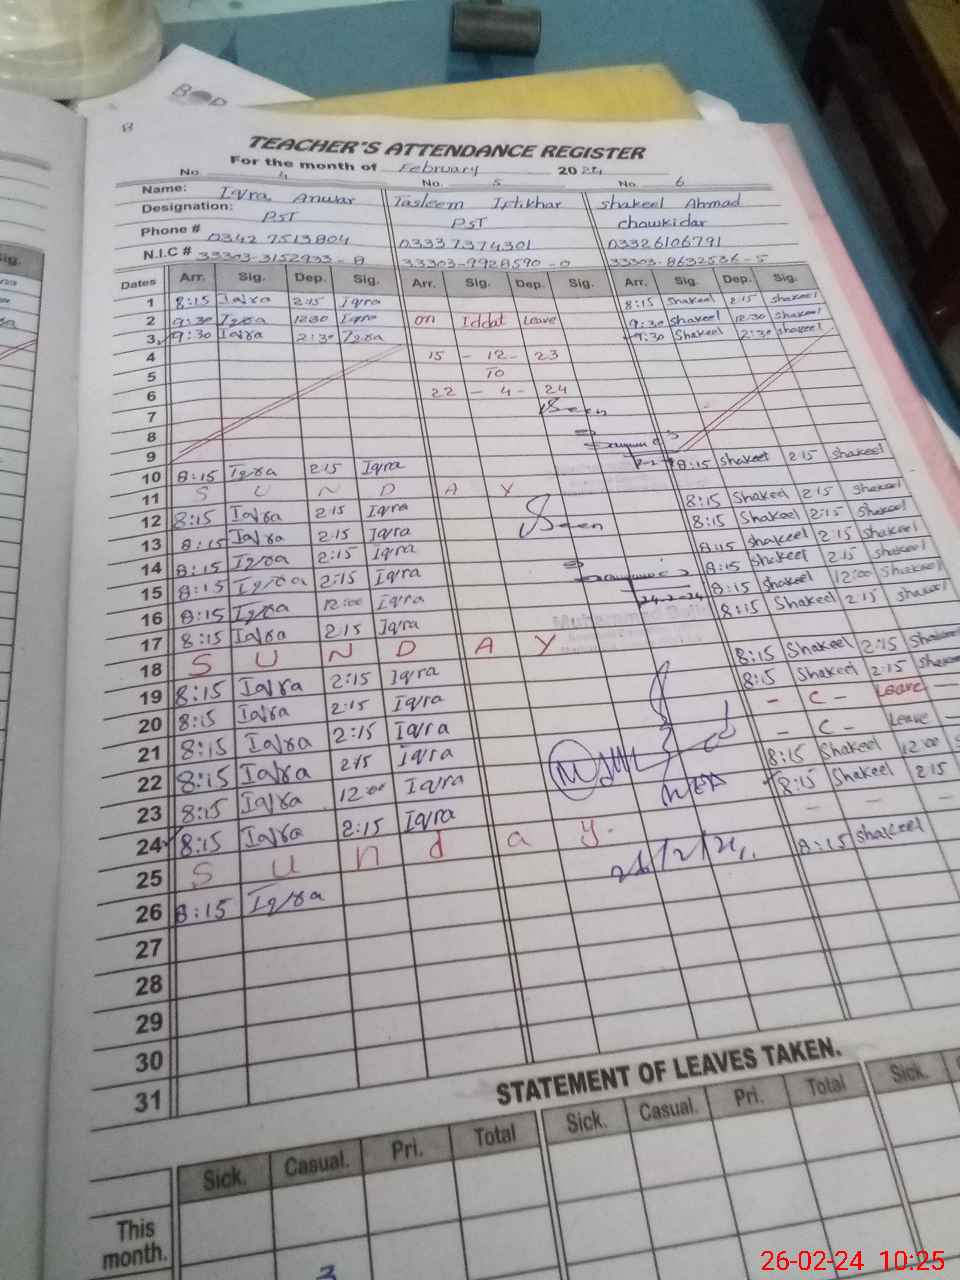 TEACHER'S ATTENDANCE REGISTER
For the month of February 2024
No. 4 No. 5 No. 6
Name: Iqra Anwar Tasleem Iftikhar Shakeel Ahmad
Designation: PST PST chowkidar
Phone # 0342 7513804 03337374301 03326106791
N.I.C # 33303-3152933-8 33303-9928590-0 33303-8632536-5
Dates Arr. Sig. Dep. Sig. Arr. Sig. Dep. Sig. Arr. Sig. Dep. Sig.
1 8:15 Iqra 2:15 Iqra 8:15 Shakeel 2:15 Shakeel
2 9:30 Iqra 12:30 Iqra on Iddat Leave 9:30 Shakeel 12:30 Shakeel
3 9:30 Iqra 2:30 Iqra 9:30 Shakeel 2:30 Shakeel
4 15 - 12 - 23
5 TO
6 22 - 4 - 24
7 Seen
8
9
10 8:15 Iqra 2:15 Iqra 8:15 Shakeel 2:15 Shakeel
11 S U N D A Y
12 8:15 Iqra 2:15 Iqra 8:15 Shakeel 2:15 Shakeel
13 8:15 Iqra 2:15 Iqra Seen 8:15 Shakeel 2:15 Shakeel
14 8:15 Iqra 2:15 Iqra 8:15 Shakeel 2:15 Shakeel
15 8:15 Iqra 2:15 Iqra 8:15 Shakeel 2:15 Shakeel
16 8:15 Iqra 12:00 Iqra 24-2-24 8:15 Shakeel 12:00 Shakeel
17 8:15 Iqra 2:15 Iqra 8:15 Shakeel 2:15 Shakeel
18 S U N D A Y
19 8:15 Iqra 2:15 Iqra 8:15 Shakeel 2:15 Shakeel
20 8:15 Iqra 2:15 Iqra 8:15 Shakeel 2:15 Shakeel
21 8:15 Iqra 2:15 Iqra - C - Leave -
22 8:15 Iqra 2:15 Iqra - C - Leave -
23 8:15 Iqra 12:00 Iqra 8:15 Shakeel 12:00 S
24 8:15 Iqra 2:15 Iqra 8:15 Shakeel 2:15
25 S u n d a y - - -
26 8:15 Iqra 8:15 Shakeel
27
28
29
30
31
STATEMENT OF LEAVES TAKEN.
Sick. Casual. Pri. Total Sick. Casual. Pri. Total Sick.
This month.
26-02-24 10:25